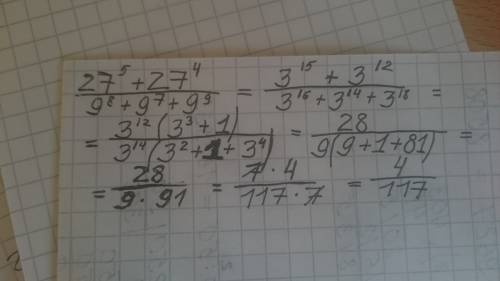 (27⁵ + 27⁴)/(9⁸ + 9⁷ + 9⁹) = (3¹⁵ + 3¹²)/(3¹⁶ + 3¹⁴ + 3¹⁸) =
= (3¹²(3³ + 1))/(3¹⁴(3² + 1 + 3⁴)) = 28/(9(9 + 1 + 81)) =
= 28/(9 · 91) = (7 · 4)/(117 · 7) = 4/117